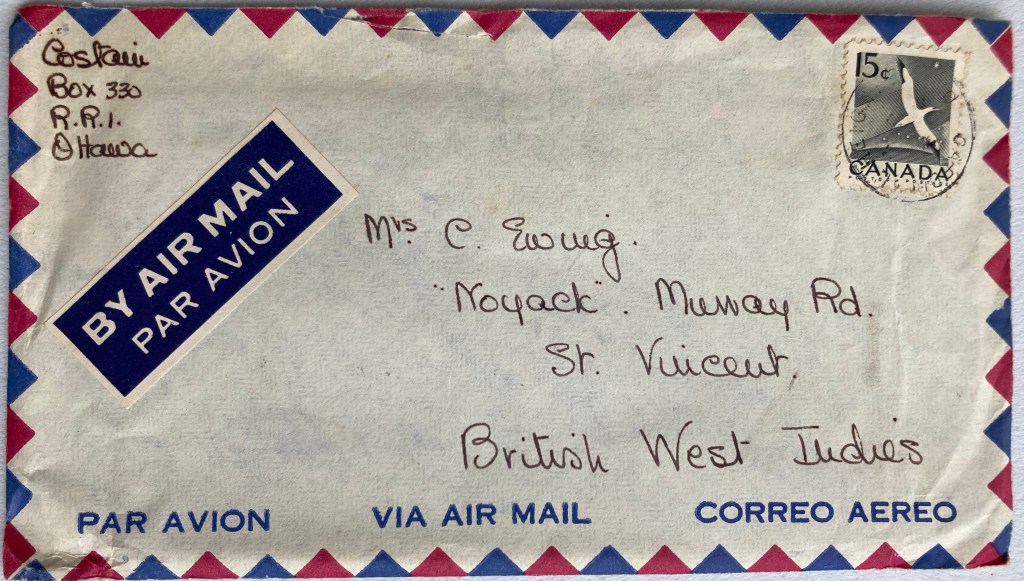 Costain
Box 330
R.R.1.
Ottawa
15¢
CANADA
BY AIR MAIL
PAR AVION
Mrs. C. Ewing.
"Noyack". Murray Rd.
St. Vincent,
British West Indies
PAR AVION VIA AIR MAIL CORREO AEREO